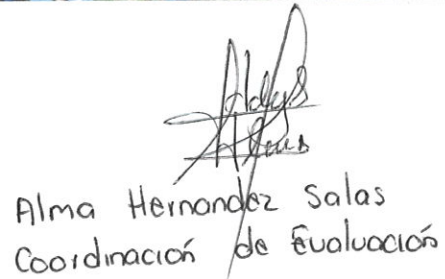 Alma Hernandez Salas
Coordinación de Evaluación